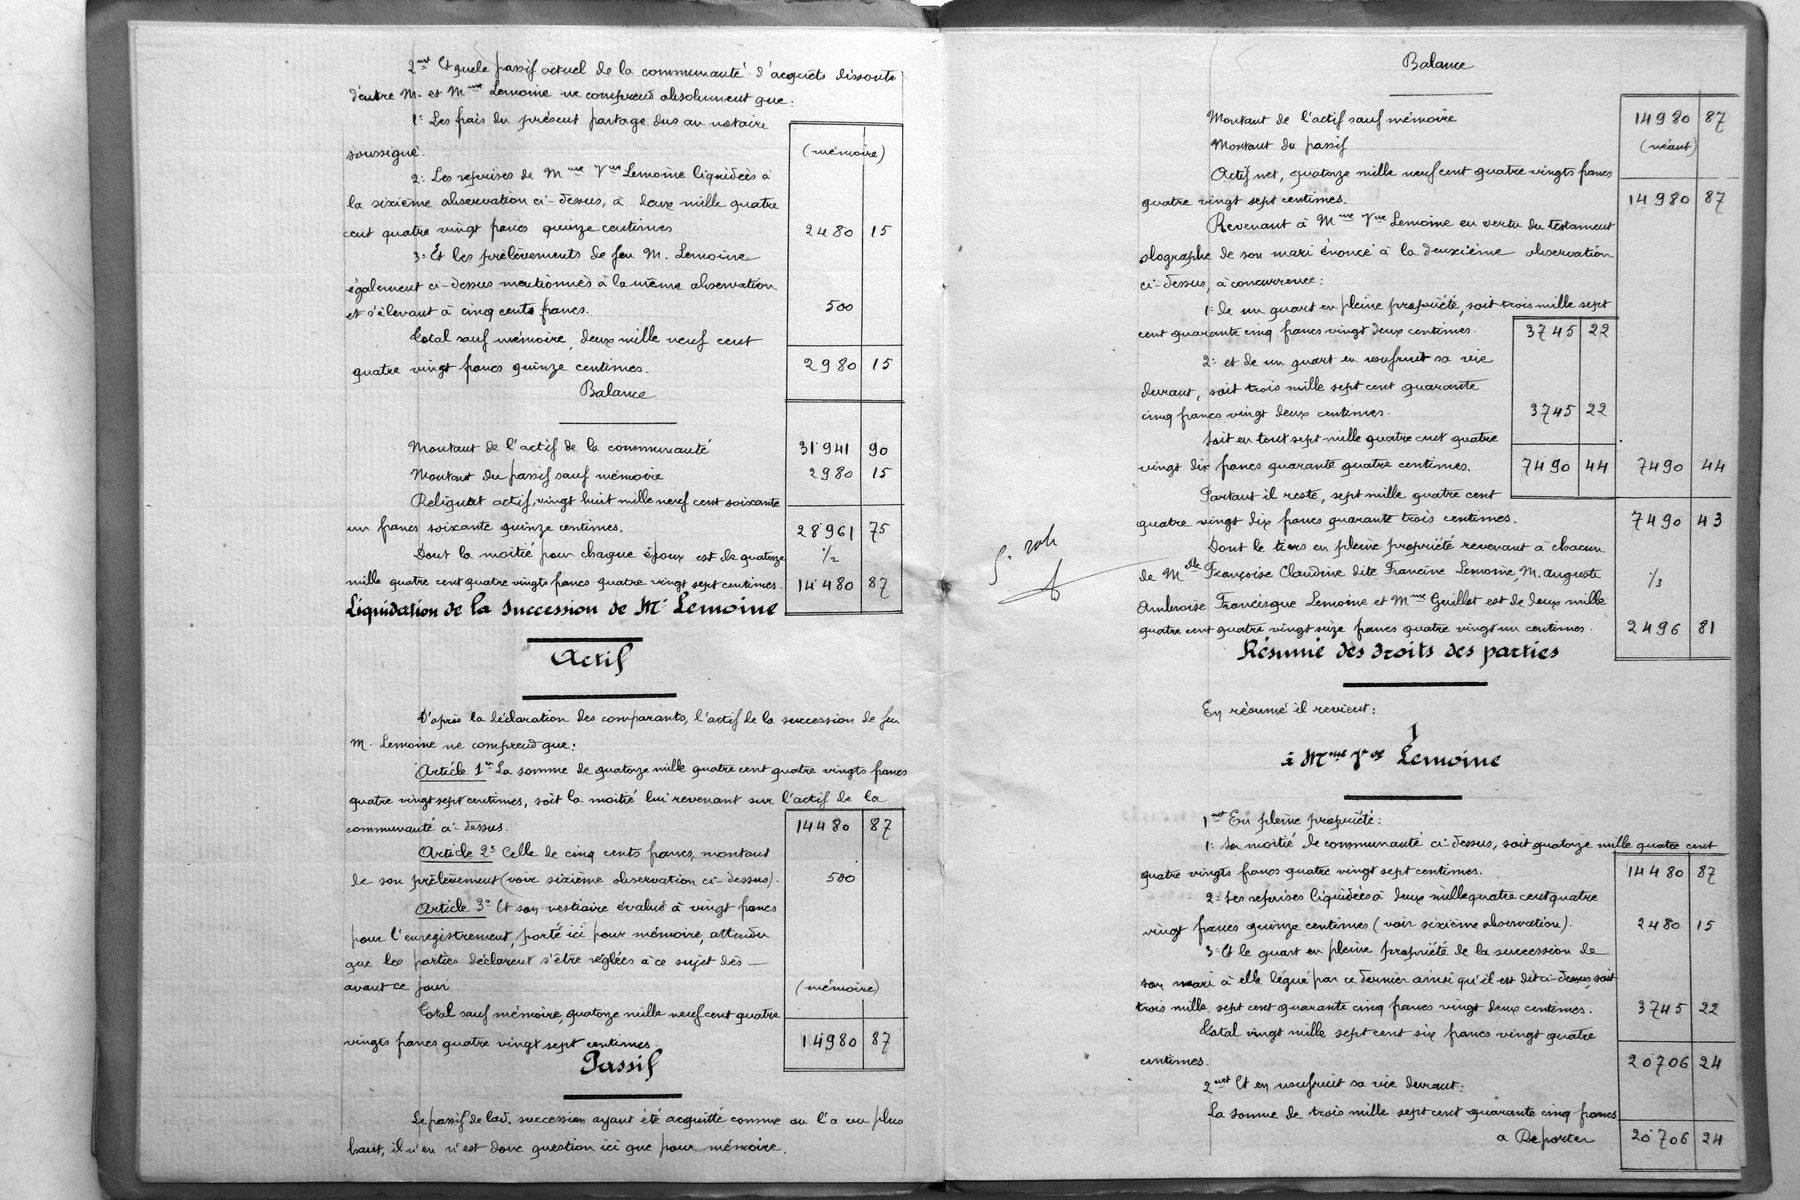 2ent Et que le passif actuel de la communauté d'acquêts dissoute
d'entre M. et Mme Lemoine ne comprend absolument que:
1° Les frais du présent partage dus au notaire
soussigné. (mémoire)
2° Les reprises de Mme Vve Lemoine liquidées à
la sixième observation ci-dessus, à deux mille quatre
cent quatre vingt francs quinze centimes 2480 15
3° Et les prélèvements de feu M. Lemoine
également ci-dessus mentionnés à la même observation
et s'élevant à cinq cents francs. 500
Total sauf mémoire, deux mille neuf cent
quatre vingt francs quinze centimes. 2980 15
Balance
Montant de l'actif de la communauté 31941 90
Montant du passif sauf mémoire 2980 15
Reliquat actif, vingt huit mille neuf cent soixante
un francs soixante quinze centimes. 28961 75
Dont la moitié pour chaque époux est de quatorze 1/2
mille quatre cent quatre vingts francs quatre vingt sept centimes. 14480 87
Liquidation de la succession de M. Lemoine
Actif
D'après la déclaration des comparants, l'actif de la succession de feu
M. Lemoine ne comprend que:
Article 1er La somme de quatorze mille quatre cent quatre vingts francs
quatre vingt sept centimes, soit la moitié lui revenant sur l'actif de la
communauté ci-dessus. 14480 87
Article 2° Celle de cinq cents francs, montant
de son prélèvement (voir sixième observation ci-dessus). 500
Article 3° Et son vestiaire évalué à vingt francs
pour l'enregistrement, porté ici pour mémoire, attendu
que les parties déclarent s'être réglées à ce sujet dès —
avant ce jour (mémoire)
Total sauf mémoire, quatorze mille neuf cent quatre
vingts francs quatre vingt sept centimes. 14980 87
Passif
Le passif de lad. succession ayant été acquitté comme on l'a vu plus
haut, il n'en n'est donc question ici que pour mémoire.
Balance
Montant de l'actif sauf mémoire 14980 87
Montant du passif (néant)
Actif net, quatorze mille neuf cent quatre vingts francs
quatre vingt sept centimes. 14980 87
Revenant à Mme Vve Lemoine en vertu du testament
olographe de son mari énoncé à la deuxième observation
ci-dessus, à concurrence:
1° de un quart en pleine propriété, soit trois mille sept
cent quarante cinq francs vingt deux centimes. 3745 22
2° et de un quart en usufruit sa vie
durant, soit trois mille sept cent quarante
cinq francs vingt deux centimes. 3745 22
Soit en tout sept mille quatre cent quatre
vingt dix francs quarante quatre centimes. 7490 44 7490 44
Partant il reste, sept mille quatre cent
quatre vingt dix francs quarante trois centimes. 7490 43
Dont le tiers en pleine propriété revenant à chacun
de Mlle Françoise Claudine dite Francine Lemoine, M. Auguste 1/3
Ambroise Francisque Lemoine et Mme Guillot est de deux mille
quatre cent quatre vingt seize francs quatre vingt un centimes. 2496 81
Résumé des droits des parties
En résumé il revient:
1
à Mme Vve Lemoine
1ent En pleine propriété:
1° Sa moitié de communauté ci-dessus, soit quatorze mille quatre cent
quatre vingts francs quatre vingt sept centimes. 14480 87
2° Ses reprises liquidées à deux mille quatre cent quatre
vingt francs quinze centimes (voir sixième observation). 2480 15
3° Et le quart en pleine propriété de la succession de
son mari à elle légué par ce dernier ainsi qu'il est dit ci-dessus, soit
trois mille sept cent quarante cinq francs vingt deux centimes. 3745 22
Total vingt mille sept cent six francs vingt quatre
centimes. 20706 24
2ent Et en usufruit sa vie durant:
La somme de trois mille sept cent quarante cinq francs
a Reporter 20706 24